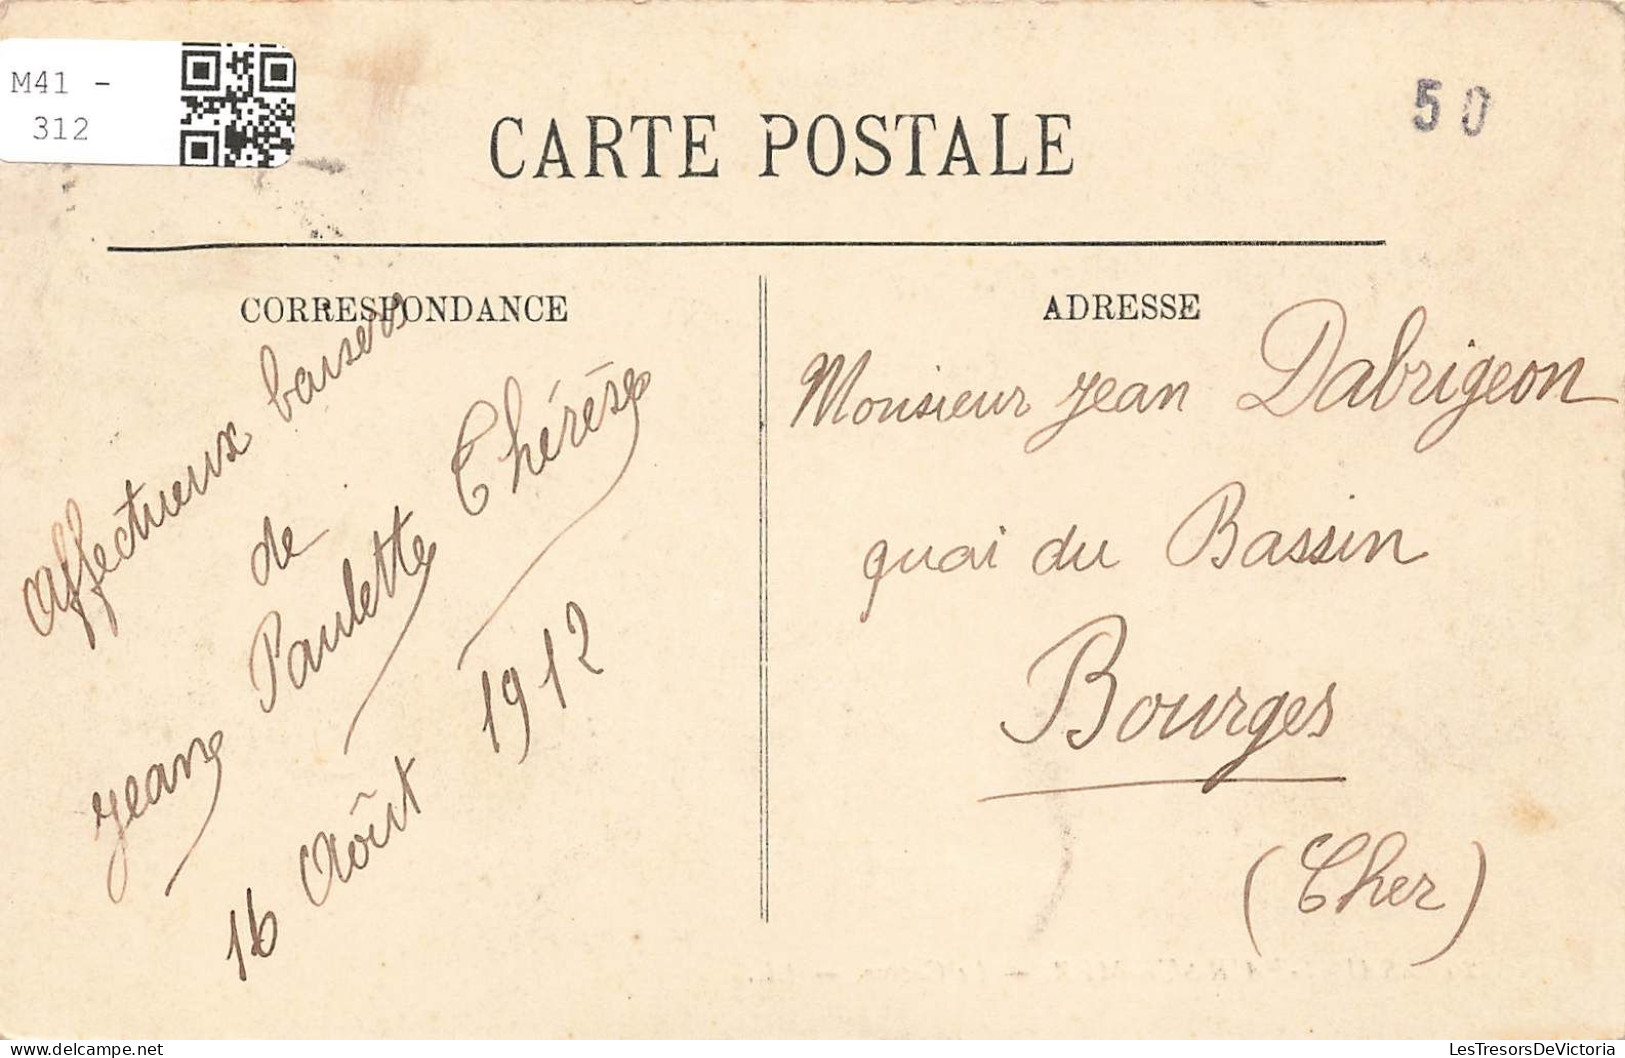 M41 -
312
50
CARTE POSTALE
CORRESPONDANCE
Affectueux baisers
de
Jeane Paulette Thérèse
16 Août 1912
ADRESSE
Monsieur Jean Dabrigeon
quai du Bassin
Bourges
(Cher)
LesTresorsDeVictoria